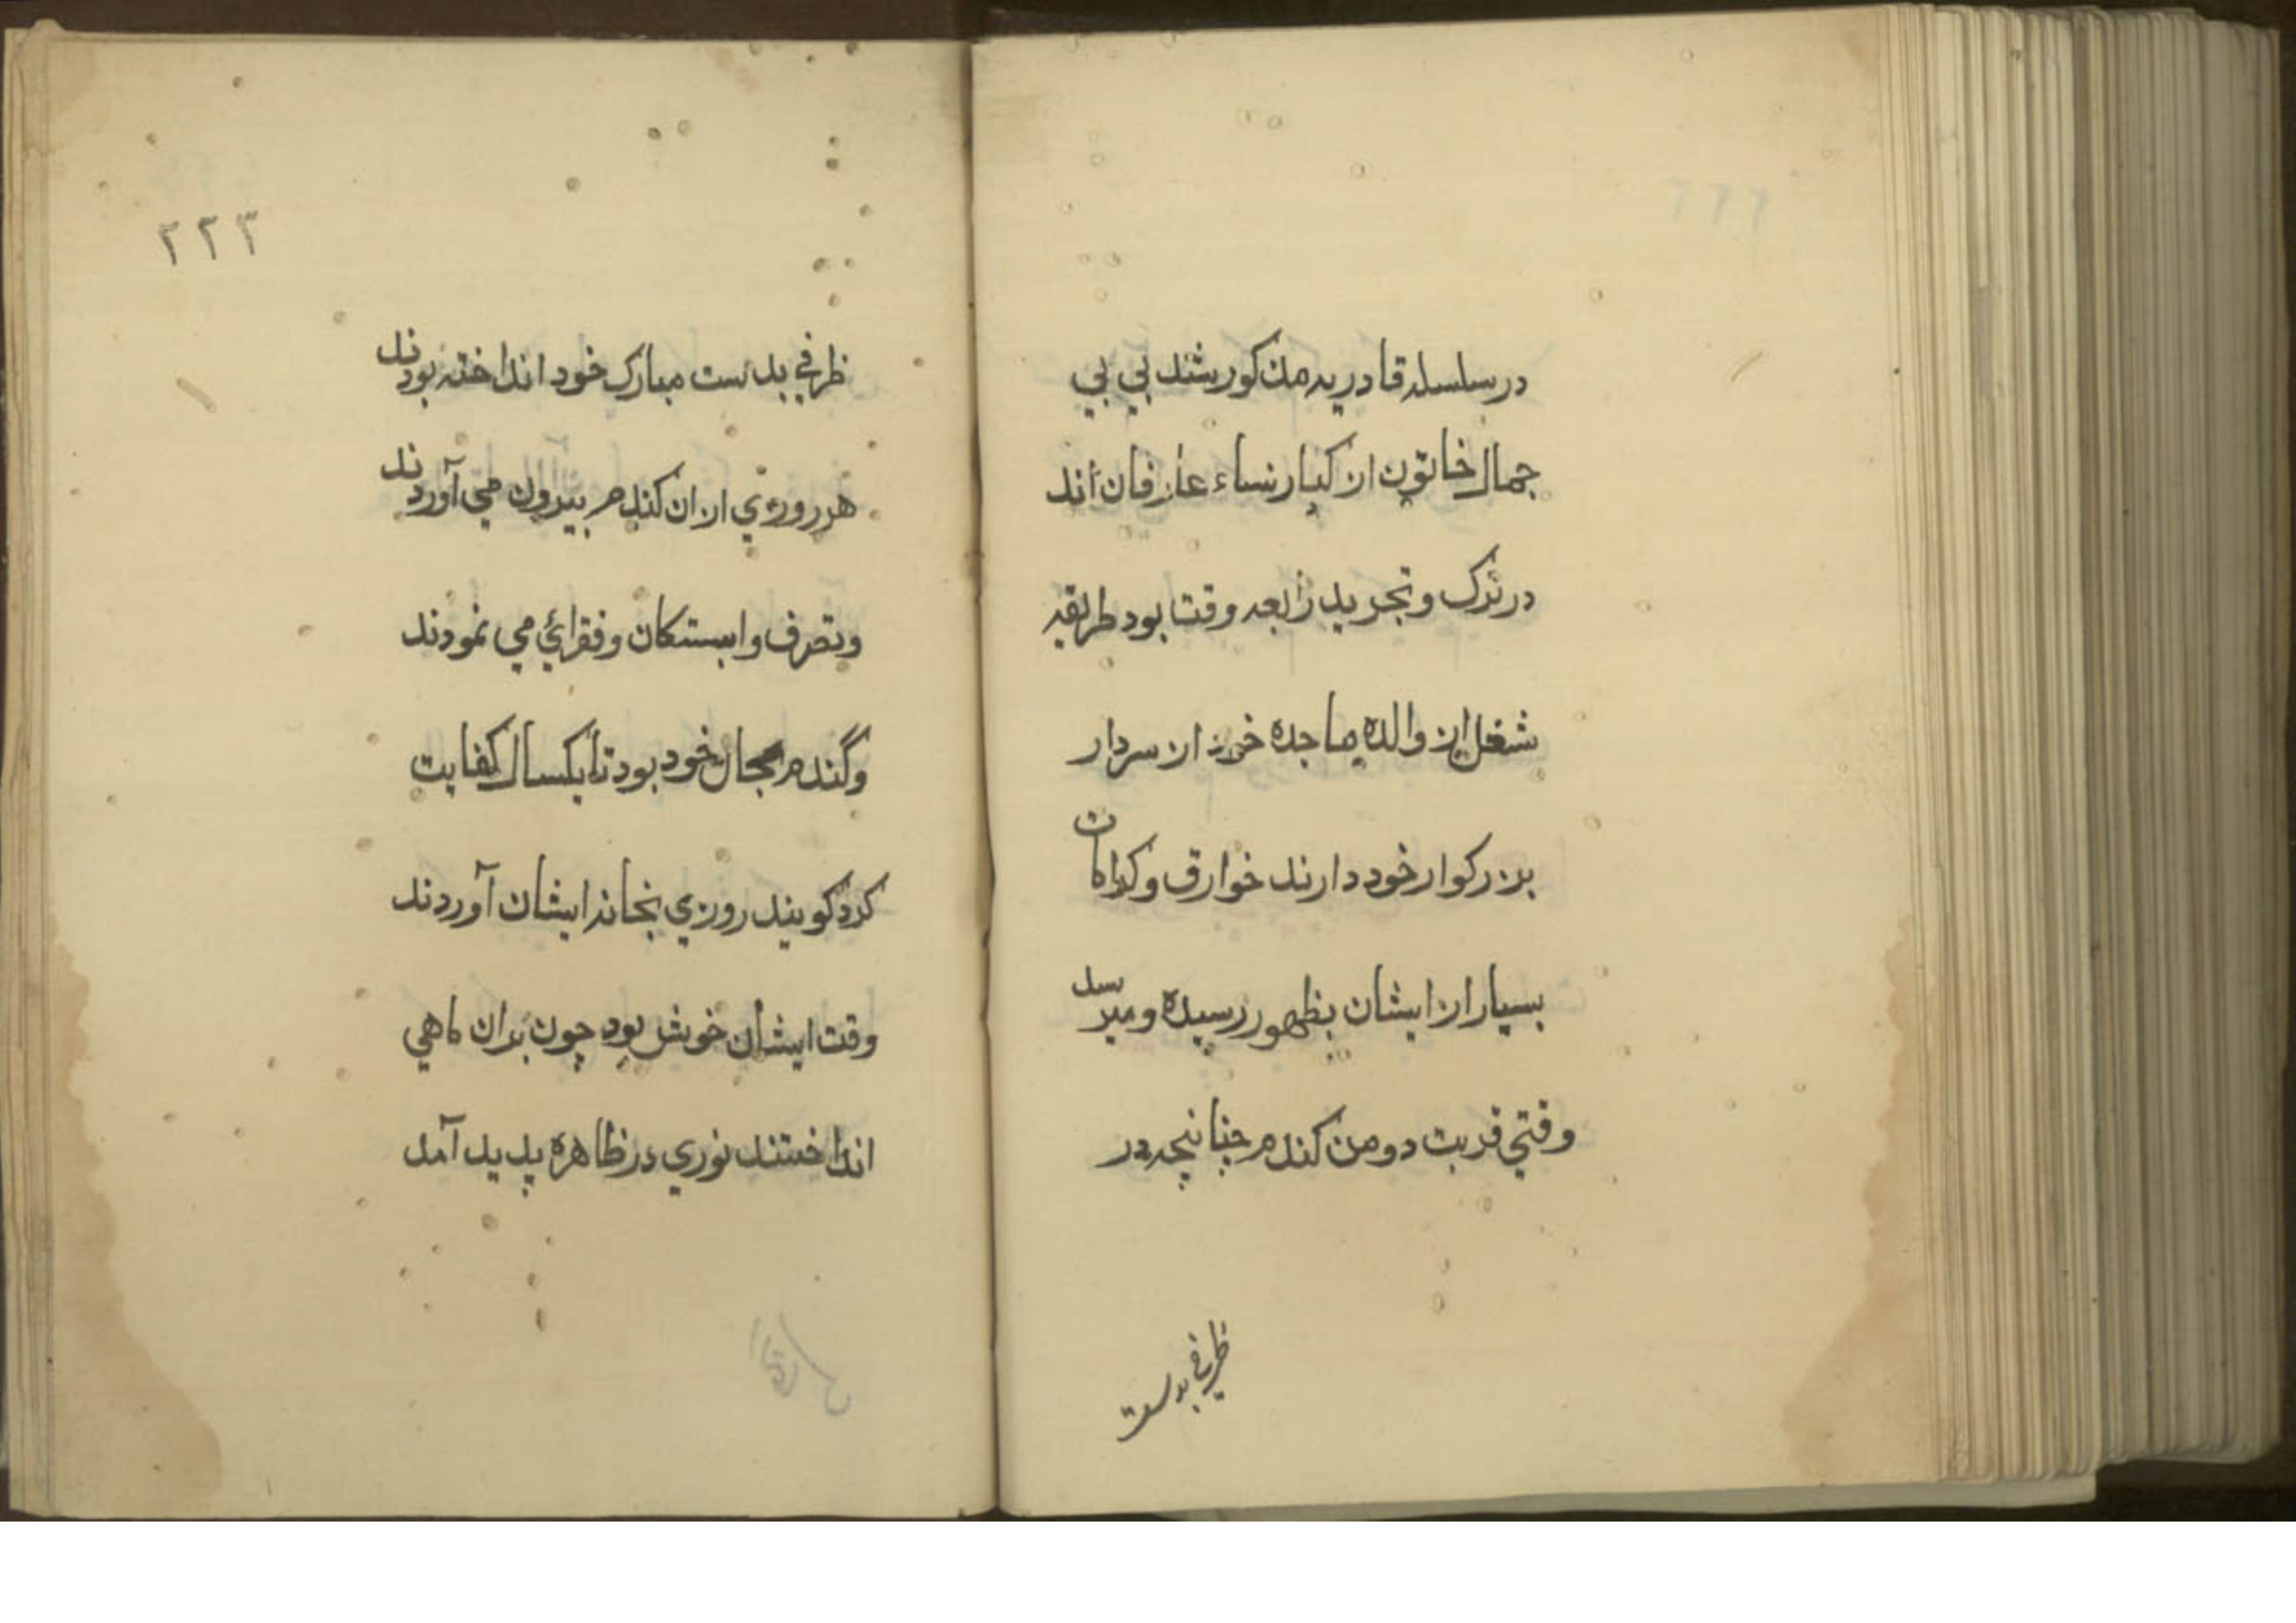 در سلسله قادریه مذکور شد بي بي
جمال خاتون از کبار نساء عارفان اند
در ترک و تجرید رابعه وقت بود طریقه
شغل این والده ماجده خود از سردار
بزرکوار خود دارند خوارق و کرامات
بسیار از ایشان بظهور رسیده و میرسد
وقتي قریت دو من کندم چنانچه در
ظرفي بدست
٢٢٣
ظرفي بدست مبارک خود انداخته بودند
هر روزي ازان کندم بیرون مي آوردند
وتصرف وابستکان و فقرائي مي نمودند
وگندم بحال خود بود تا یکسال کفایت
کرد کویند روزي بخانه ایشان آوردند
وقت ایشان خوش بود چون بران ماهي
انداختند نوري در ظاهره پدید آمد